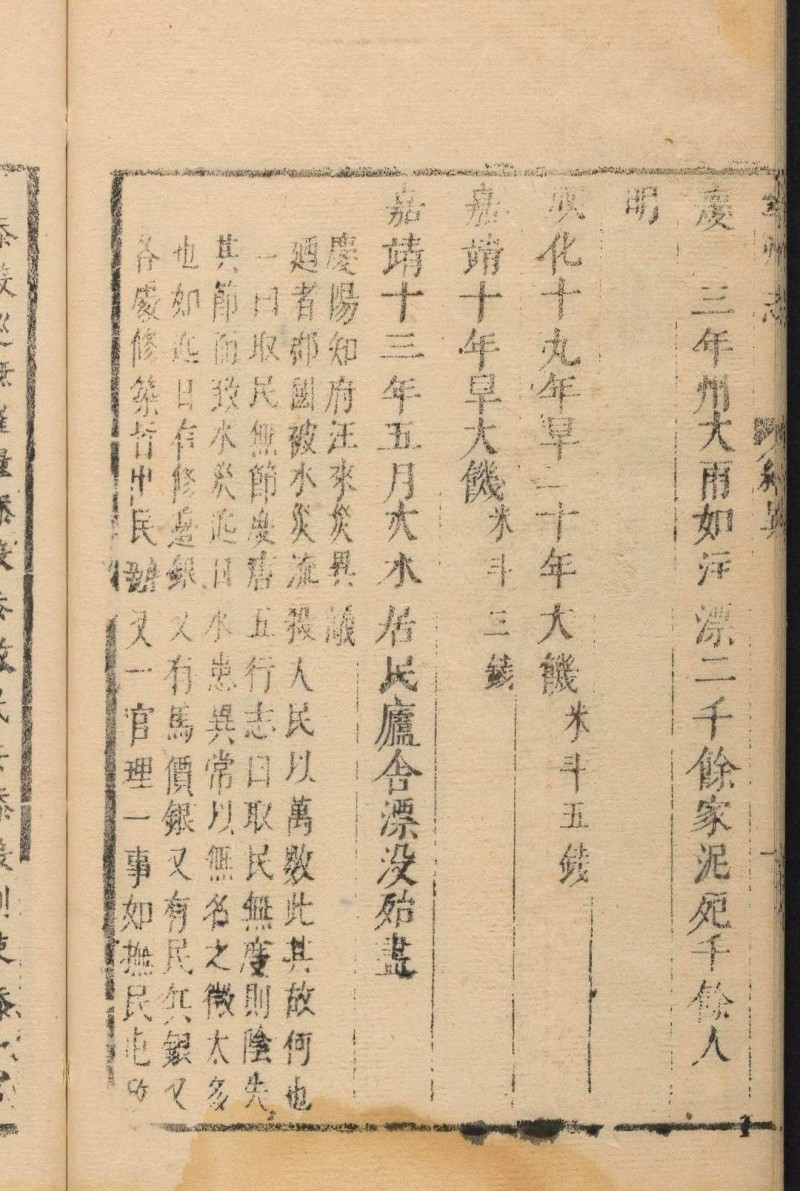 寧州志 紀異
慶 三年州大雨如注漂二千餘家泥死千餘人
明
化十九年旱二十年大饑米斗五錢
嘉靖十年旱大饑米斗三錢
嘉靖十三年五月大水居民廬舍漂没殆盡
慶陽知府汪來災異議
廼者郡國被水災流殺人民以萬數此其故何也
一曰取民無節慶唐五行志曰取民無度則陰失
其節而致水災近日水患異常以無名之徵太多
也如近日有修邊銀又有馬價銀又有民兵銀又
各處修築皆中民 又一官理一事如撫民屯